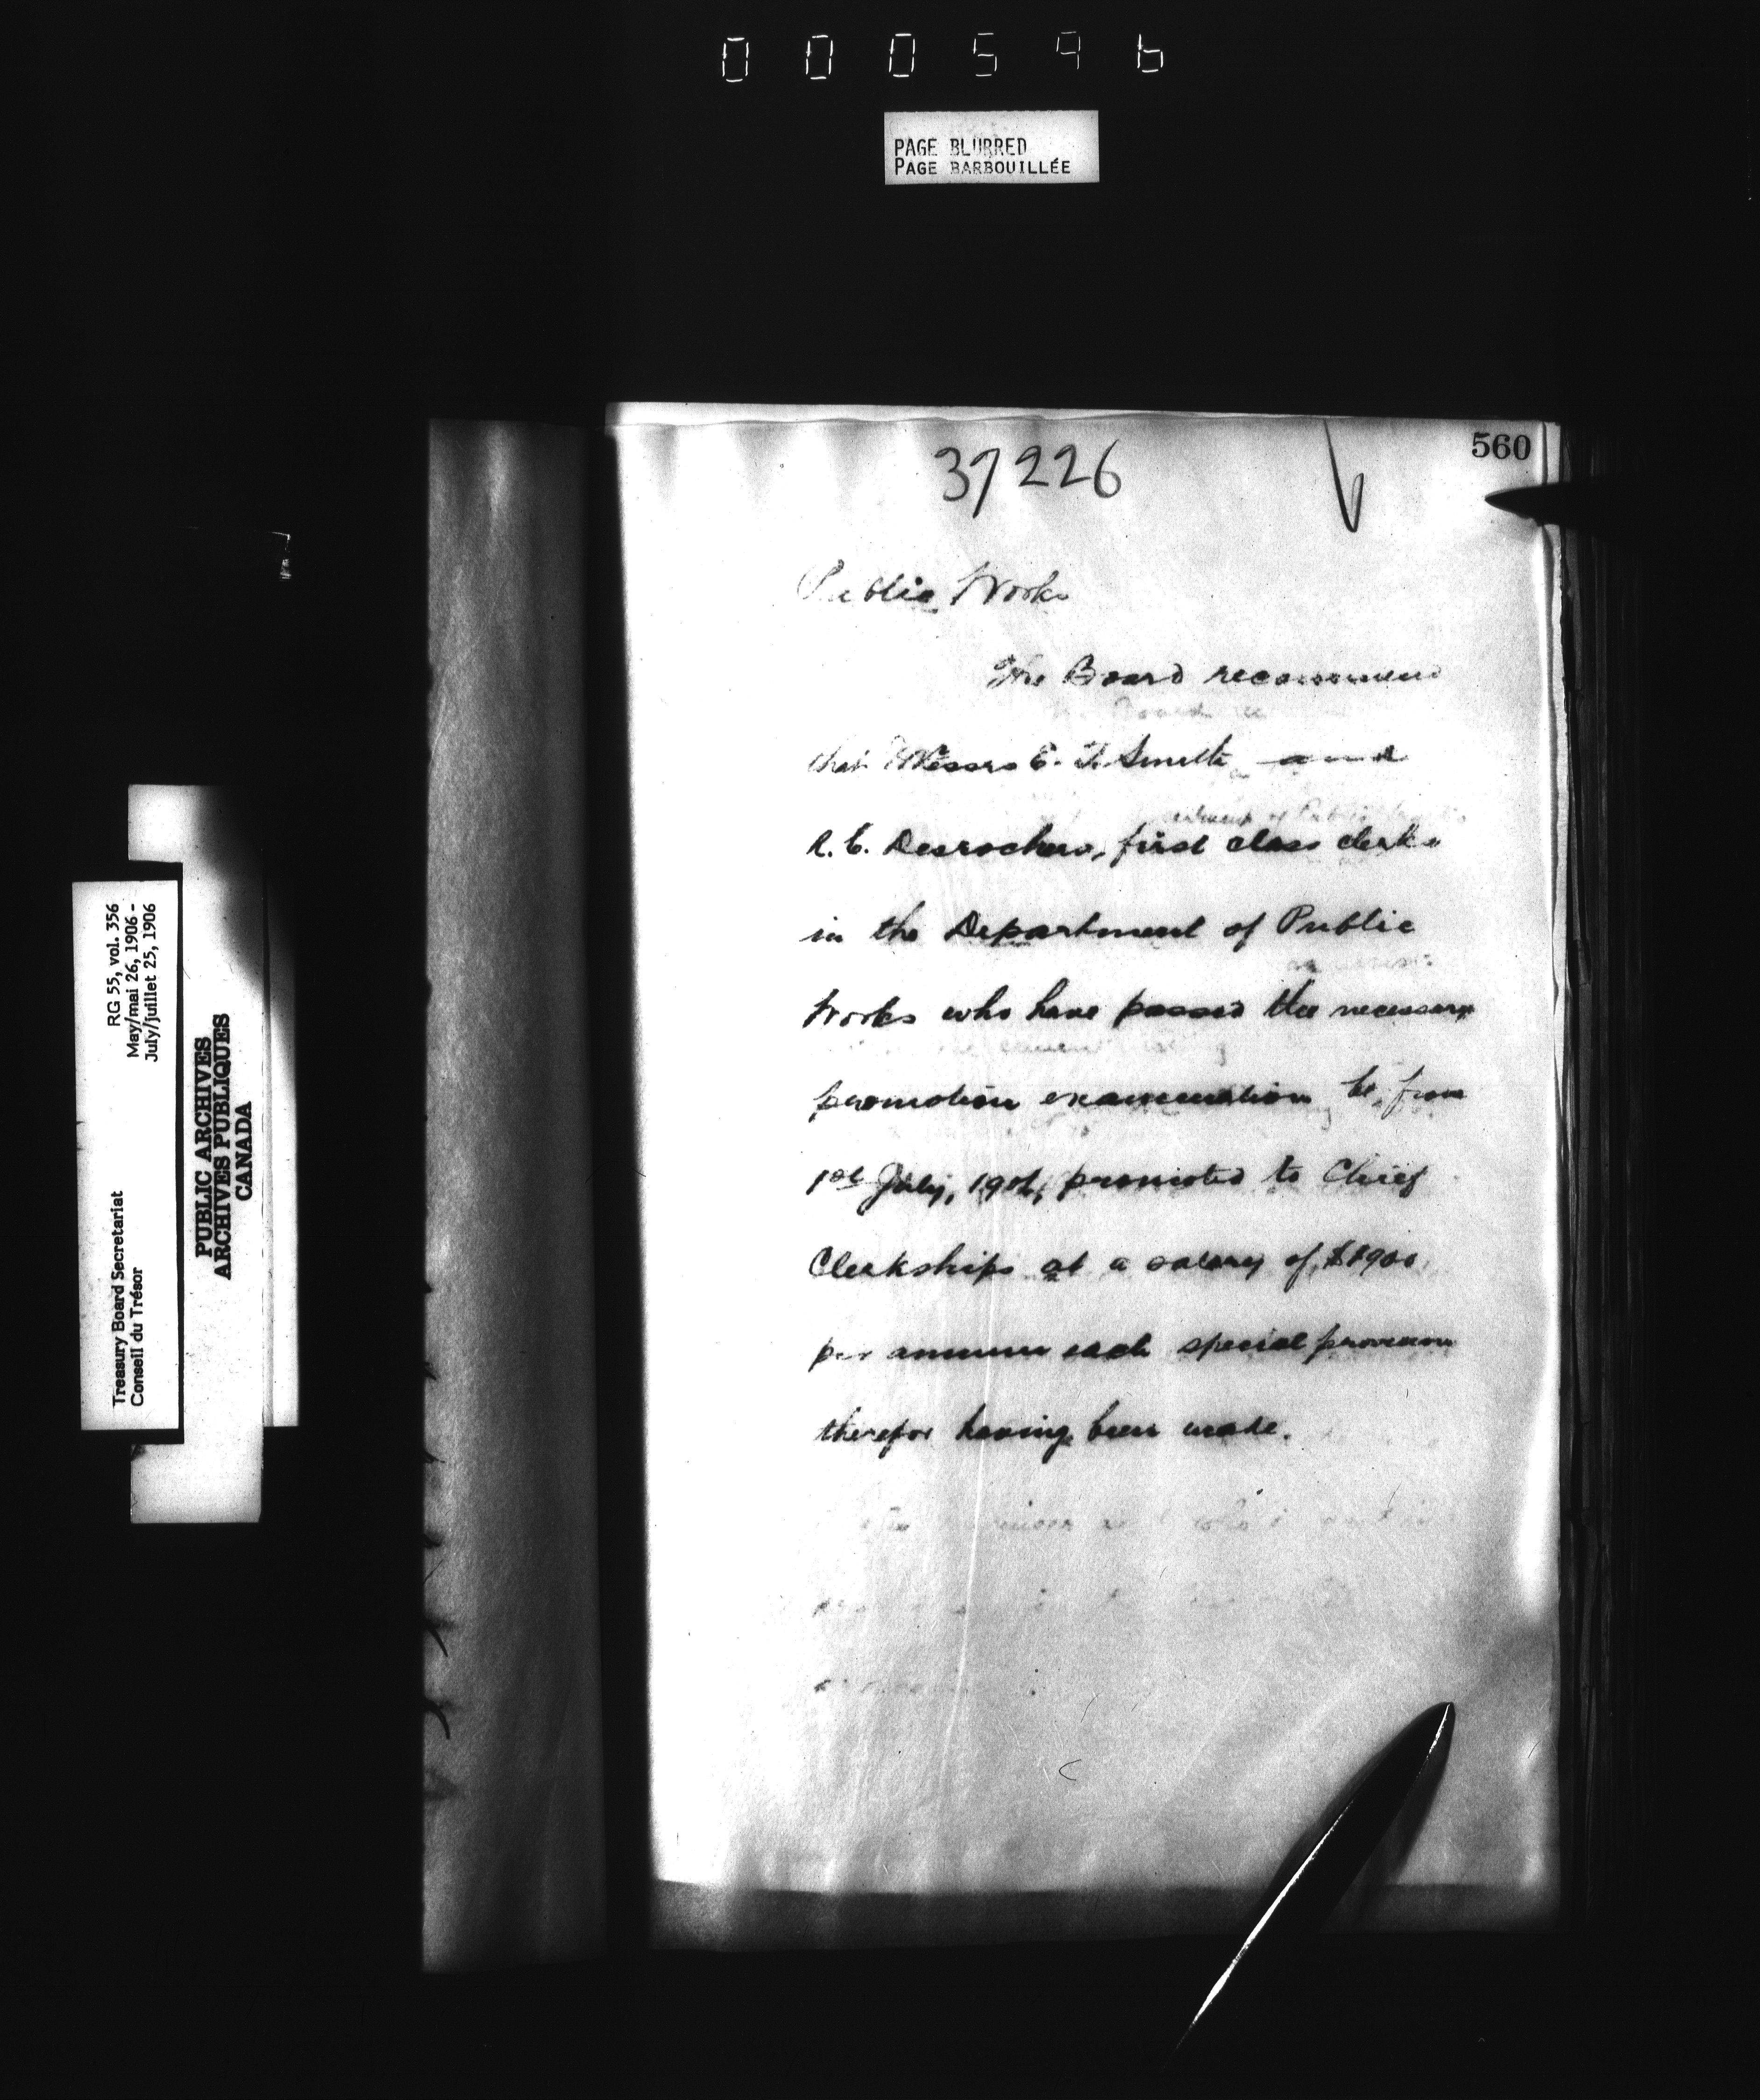 000596
PAGE BLURRED
PAGE BARBOUILLÉE
560
37226
Public Works
The Board recommend
that Messrs E. T. Smith and
R. C. Desrochers, first class clerks
in the Department of Public
Works who have passed the necessary
promotion examination be, from
1st July, 1906, promoted to Chief
Clerkships at a salary of $1900
per annum each special provision
therefor having been made.
RG 55, vol. 356
May/mai 26, 1906 -
July/juillet 25, 1906
Treasury Board Secretariat
Conseil du Trésor
PUBLIC ARCHIVES
ARCHIVES PUBLIQUES
CANADA